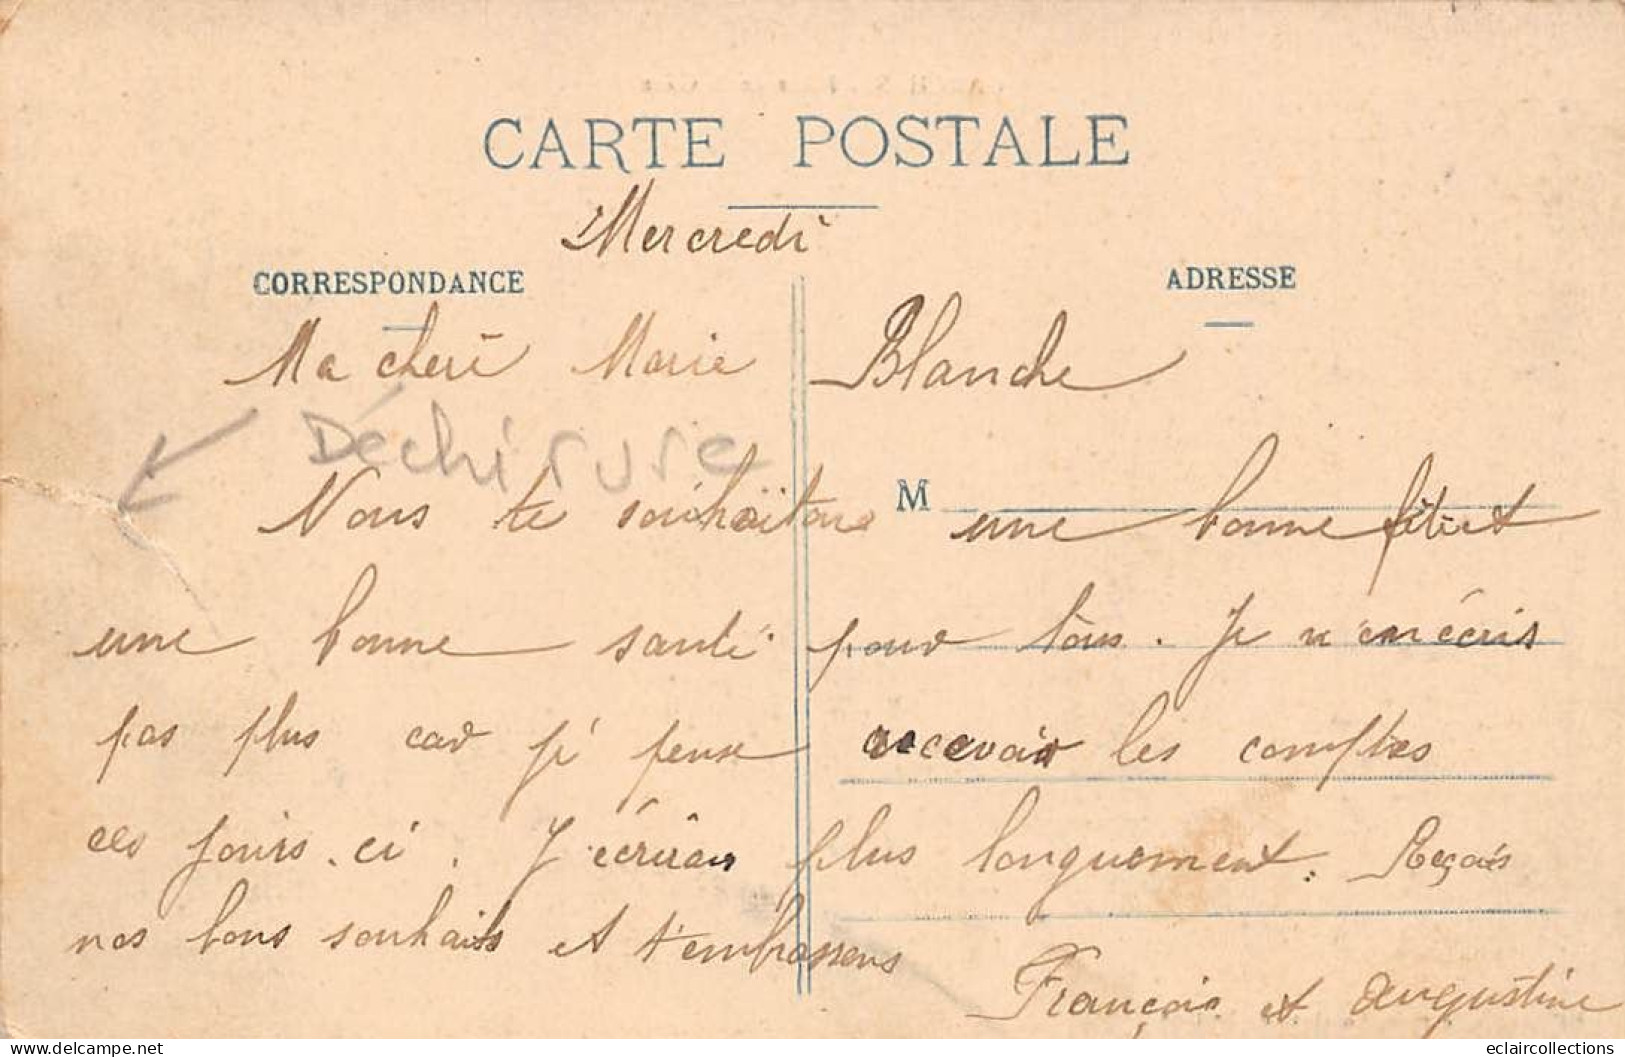 CARTE POSTALE
Mercredi
CORRESPONDANCE ADRESSE
Ma cheri Marie Blanche
Déchirure
M
Nous te souhaitons une bonne fête et
une bonne santé pour tous. Je n'en écris
pas plus car je peux recevoir les comptes
ces jours-ci. J'écrirais plus longuement. Reçois
nos bons souhaits et t'embrassons
François et augustine
eclaircollections